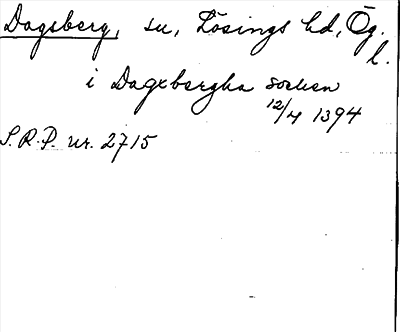 Dagsberg, sn, Lösings hd, Ög. l.
i Dagxbergha socken
12/4 1394
S.R.P. nr. 2715